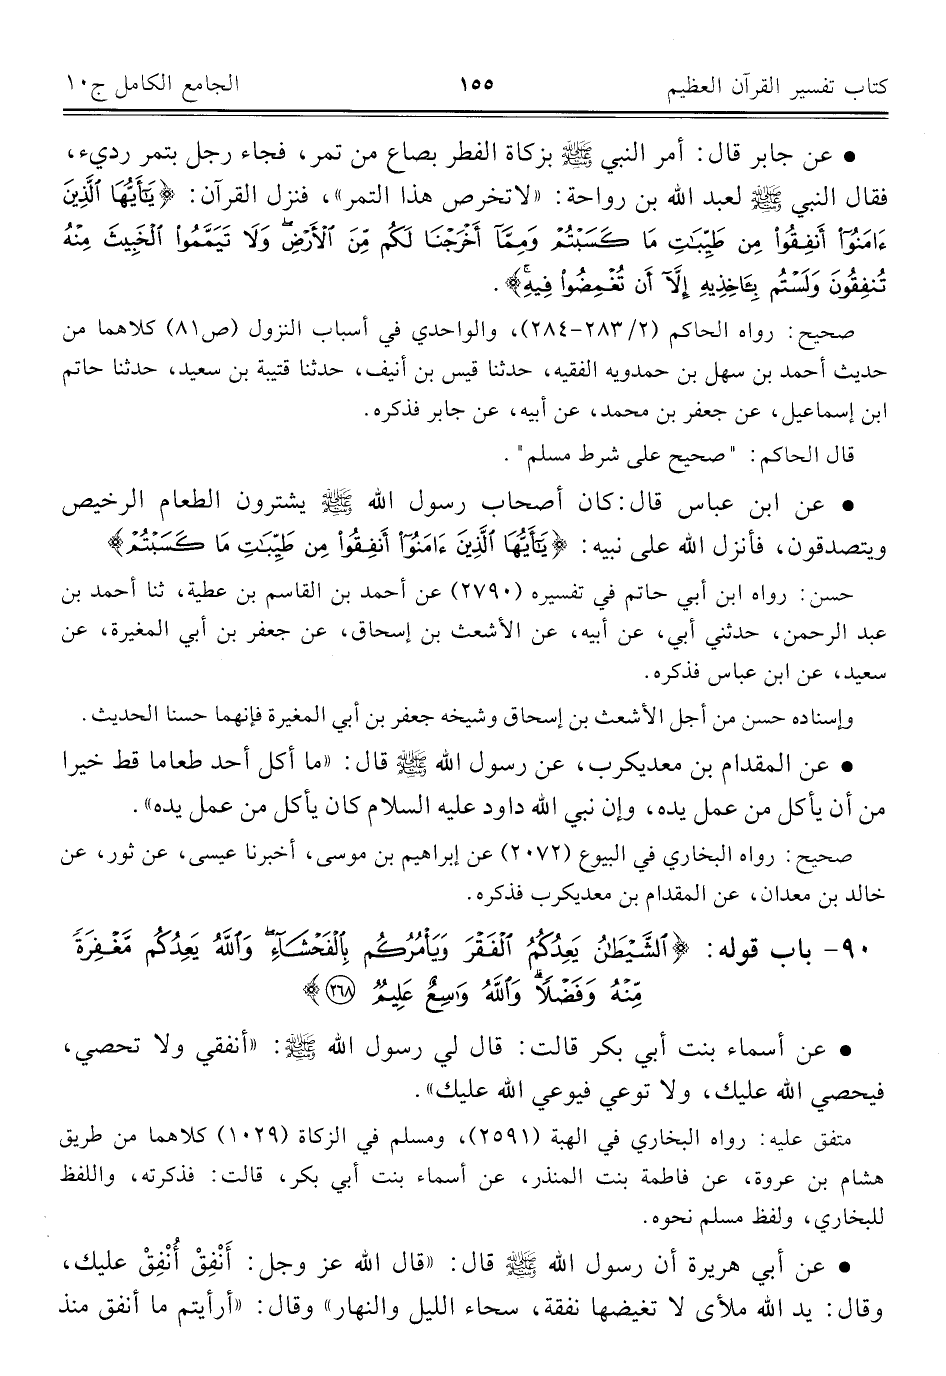 كتاب تفسير القرآن العظيم ١٥٥ الجامع الكامل ج١٠
● عن جابر قال: أمر النبي ﷺ بزكاة الفطر بصاع من تمر، فجاء رجل بتمر رديء،
فقال النبي ﷺ لعبد الله بن رواحة: «لاتخرص هذا التمر»، فنزل القرآن: ﴿يَٰٓأَيُّهَا ٱلَّذِينَ
ءَامَنُوٓا۟ أَنفِقُوا۟ مِن طَيِّبَٰتِ مَا كَسَبْتُمْ وَمِمَّآ أَخْرَجْنَا لَكُم مِّنَ ٱلْأَرْضِ ۖ وَلَا تَيَمَّمُوا۟ ٱلْخَبِيثَ مِنْهُ
تُنفِقُونَ وَلَسْتُم بِـَٔاخِذِيهِ إِلَّآ أَن تُغْمِضُوا۟ فِيهِ ۚ﴾.
صحيح: رواه الحاكم (٢/ ٢٨٣-٢٨٤)، والواحدي في أسباب النزول (ص٨١) كلاهما من
حديث أحمد بن سهل بن حمدويه الفقيه، حدثنا قيس بن أنيف، حدثنا قتيبة بن سعيد، حدثنا حاتم
ابن إسماعيل، عن جعفر بن محمد، عن أبيه، عن جابر فذكره.
قال الحاكم: "صحيح على شرط مسلم".
● عن ابن عباس قال:كان أصحاب رسول الله ﷺ يشترون الطعام الرخيص
ويتصدقون، فأنزل الله على نبيه: ﴿يَٰٓأَيُّهَا ٱلَّذِينَ ءَامَنُوٓا۟ أَنفِقُوا۟ مِن طَيِّبَٰتِ مَا كَسَبْتُمْ﴾
حسن: رواه ابن أبي حاتم في تفسيره (٢٧٩٠) عن أحمد بن القاسم بن عطية، ثنا أحمد بن
عبد الرحمن، حدثني أبي، عن أبيه، عن الأشعث بن إسحاق، عن جعفر بن أبي المغيرة، عن
سعيد، عن ابن عباس فذكره.
وإسناده حسن من أجل الأشعث بن إسحاق وشيخه جعفر بن أبي المغيرة فإنهما حسنا الحديث.
● عن المقدام بن معديكرب، عن رسول الله ﷺ قال: «ما أكل أحد طعاما قط خيرا
من أن يأكل من عمل يده، وإن نبي الله داود عليه السلام كان يأكل من عمل يده».
صحيح: رواه البخاري في البيوع (٢٠٧٢) عن إبراهيم بن موسى، أخبرنا عيسى، عن ثور، عن
خالد بن معدان، عن المقدام بن معديكرب فذكره.
٩٠- باب قوله: ﴿ٱلشَّيْطَٰنُ يَعِدُكُمُ ٱلْفَقْرَ وَيَأْمُرُكُم بِٱلْفَحْشَآءِ ۖ وَٱللَّهُ يَعِدُكُم مَّغْفِرَةً
مِّنْهُ وَفَضْلًا ۗ وَٱللَّهُ وَٰسِعٌ عَلِيمٌ ٢٦٨﴾
● عن أسماء بنت أبي بكر قالت: قال لي رسول الله ﷺ: «أنفقي ولا تحصي،
فيحصي الله عليك، ولا توعي فيوعي الله عليك».
متفق عليه: رواه البخاري في الهبة (٢٥٩١)، ومسلم في الزكاة (١٠٢٩) كلاهما من طريق
هشام بن عروة، عن فاطمة بنت المنذر، عن أسماء بنت أبي بكر، قالت: فذكرته، واللفظ
للبخاري، ولفظ مسلم نحوه.
● عن أبي هريرة أن رسول الله ﷺ قال: «قال الله عز وجل: أَنْفِقْ أُنْفِقْ عليك،
وقال: يد الله ملأى لا تغيضها نفقة، سحاء الليل والنهار» وقال: «أرأيتم ما أنفق منذ